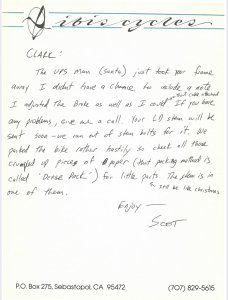 ibis cycles
CLARK:
The UPS man (Santo) just took your frame
away. I didn't have a chance to include a note.
I adjusted the brake as well as I could If you have
any problems, give me a call. Your LD stem will be
sent soon - we ran out of stem bolts for it. We
packed the bike rather hastily so check all those
crumpled up pieces of paper (that packing method is
called "Dense Pack") for little parts. The phone is in
one of them.
so it'll be like christmas
ENJOY —
SCOT
P.O. Box 275, Sebastopol, CA 95472 (707) 829-5615